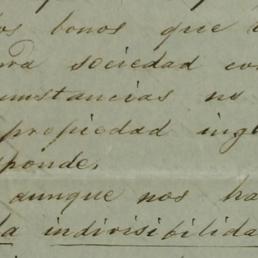 os bonos que
sociedad co
umstancias no
propiedad ingl
ponde,
aunque nos ha
la indivisibilida